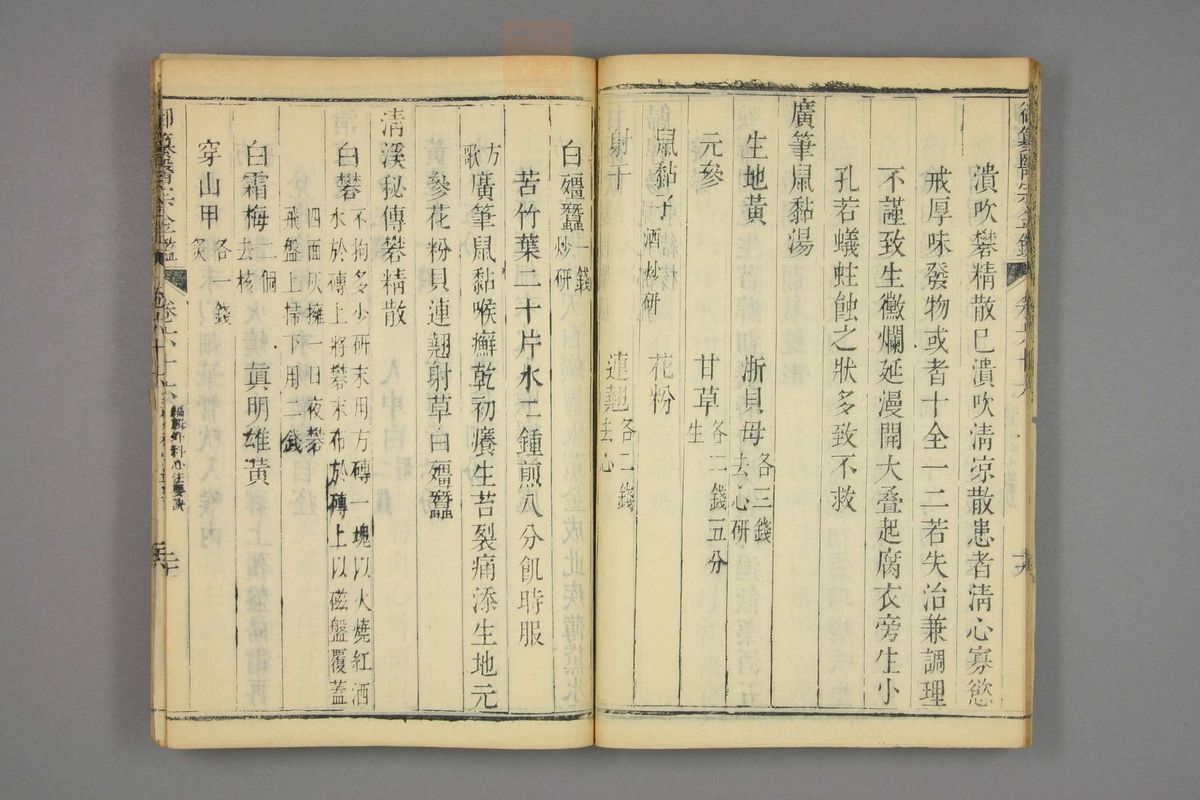 御纂醫宗金鑑
潰吹礬精散已潰吹清涼散患者清心寡慾
戒厚味發物或者十全一二若失治兼調理
不謹致生黴爛延漫開大叠起腐衣旁生小
孔若蟻蛀蝕之狀多致不救
廣筆鼠黏湯
生地黃 浙貝母去心研 各三錢
元參 甘草生 各二錢五分
鼠黏子酒炒研 花粉
射干 連翹去心 各二錢
白殭蠶炒研 一錢
苦竹葉二十片水二鍾煎八分飢時服
方歌 廣筆鼠黏喉癬乾初癢生苔裂痛添生地元
參花粉貝連翹射草白殭蠶
清溪秘傳礬精散
白礬不拘多少研末用方磚一塊以火燒紅洒
水於磚上將礬末布於磚上以磁盤覆蓋
四面灰擁一日夜礬
飛盤上掃下用二錢
白霜梅去核 二個 真明雄黃
穿山甲炙 各一錢
御纂醫宗金鑑
卷六十六
編輯外科心法要訣